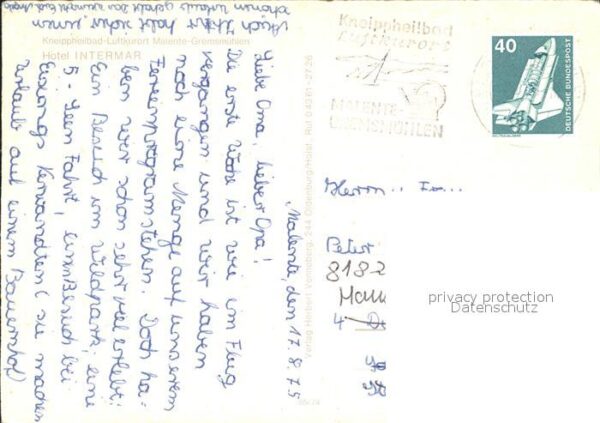 Kneippheilbad-Luftkurort Malente-Gremsmühlen
Hotel INTERMAR
Malente, den 17. 8. 75
Liebe Oma, lieber Opa!
Die erste Woche ist wie im Flug
vergangen und wir haben
noch eine Menge auf unserem
Ferienprogramm stehen. Doch ha-
ben wir schon sehr viel erlebt:
Ein Besuch im Wildpark, eine
5-Seen Fahrt, einen Besuch bei
Verwandten (sie machen
Urlaub auf einem Bauernhof)
Auch Ihr habt sicher einen
schönen Urlaub gehabt.
Kneippheilbad
Luftkurort
MALENTE-
GREMSMÜHLEN
40
DEUTSCHE BUNDESPOST
Herrn
Peter
8182
4
privacy protection
Datenschutz